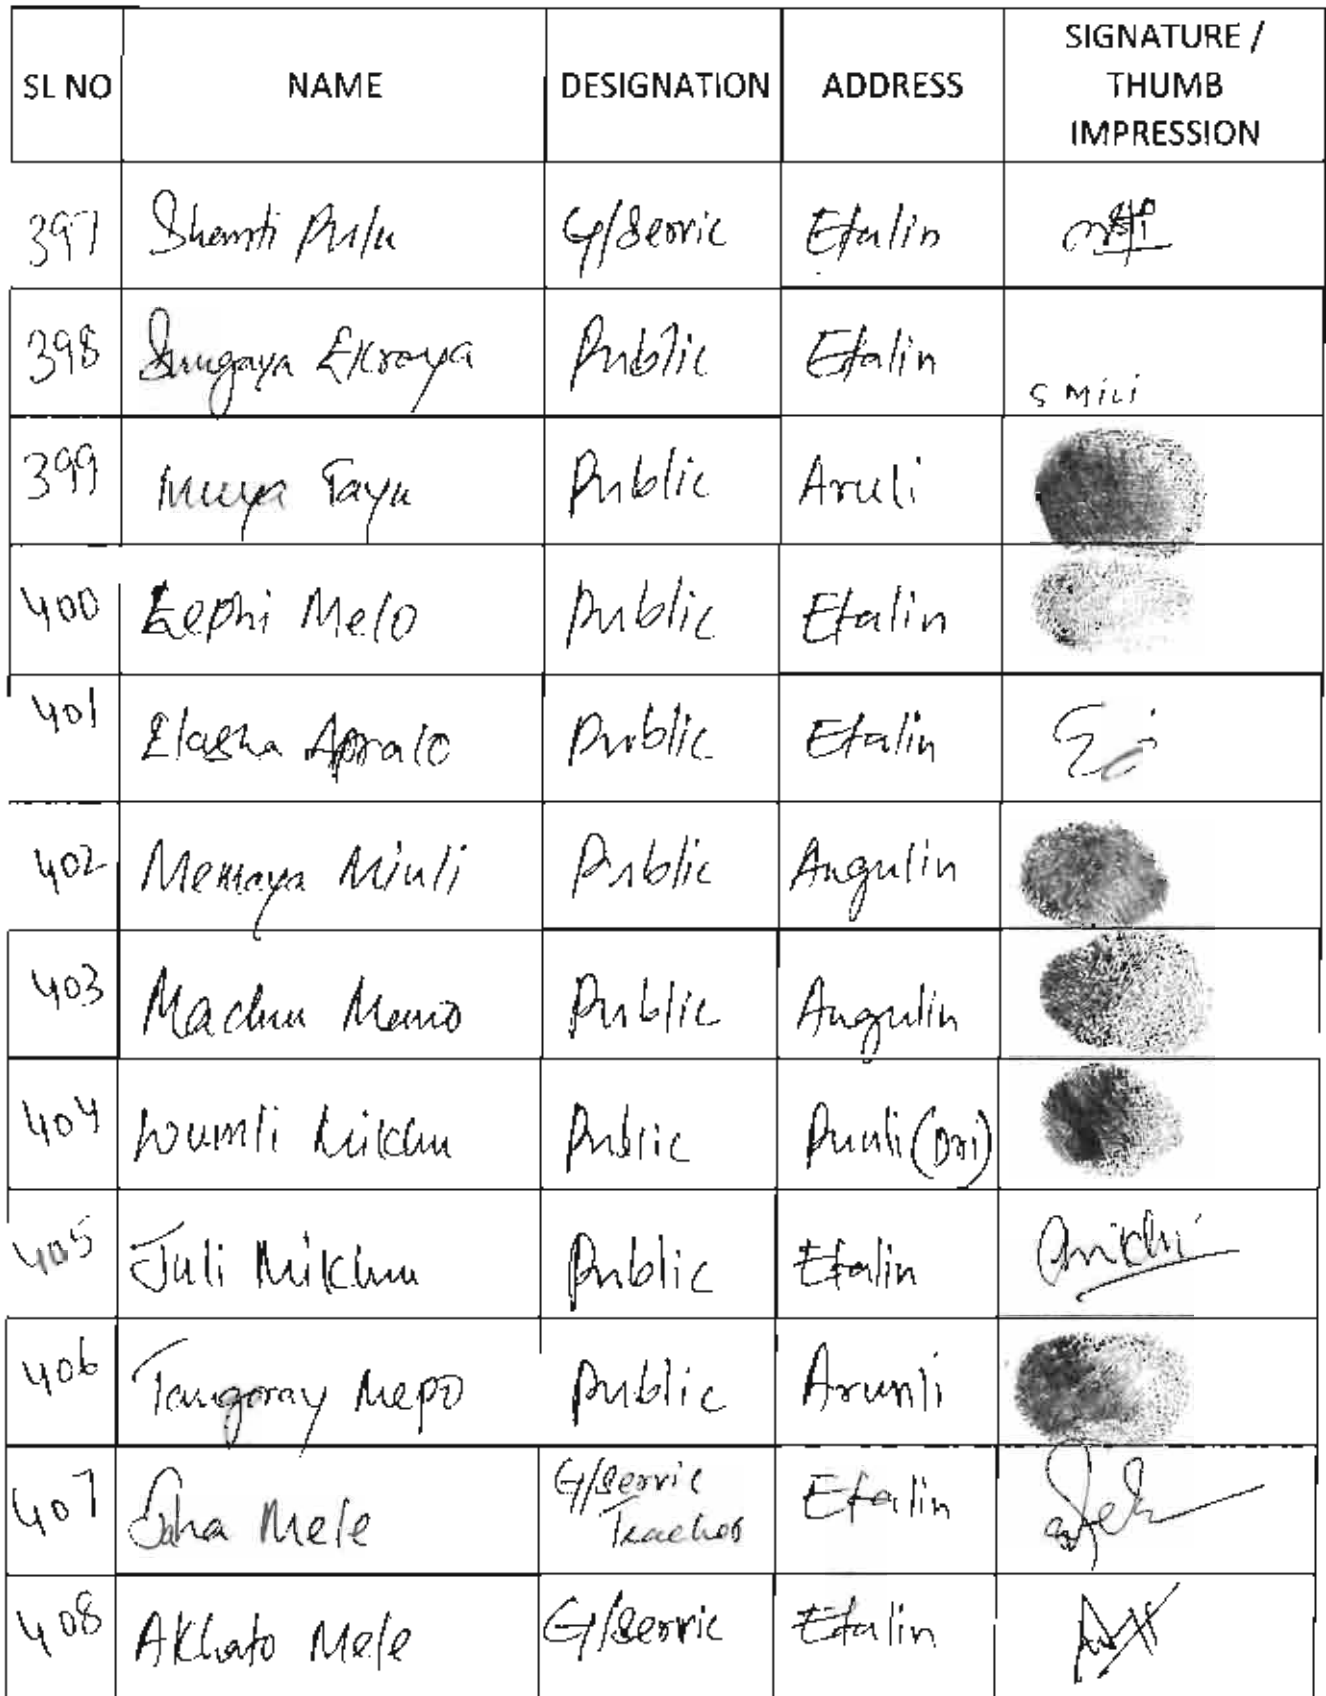 SL NO NAME DESIGNATION ADDRESS SIGNATURE /
THUMB
IMPRESSION
397 Shanti Pulu G/Servic Etalin
398 Ekroya Public Etalin S Mili
399 Muya Tayu Public Aruli
400 Eephi Melo Public Etalin
401 Elasha Apralo Public Etalin
402 Memaya Miuli Public Angulin
403 Machu Memo Public Angulin
404 Mikhu Public (Dri)
405 Juli Mikhu Public Etalin
406 Tangoray Mepo Public Arunli
407 Mele G/Servic Etalin
Teacher
408 Akhato Mele G/Servic Etalin